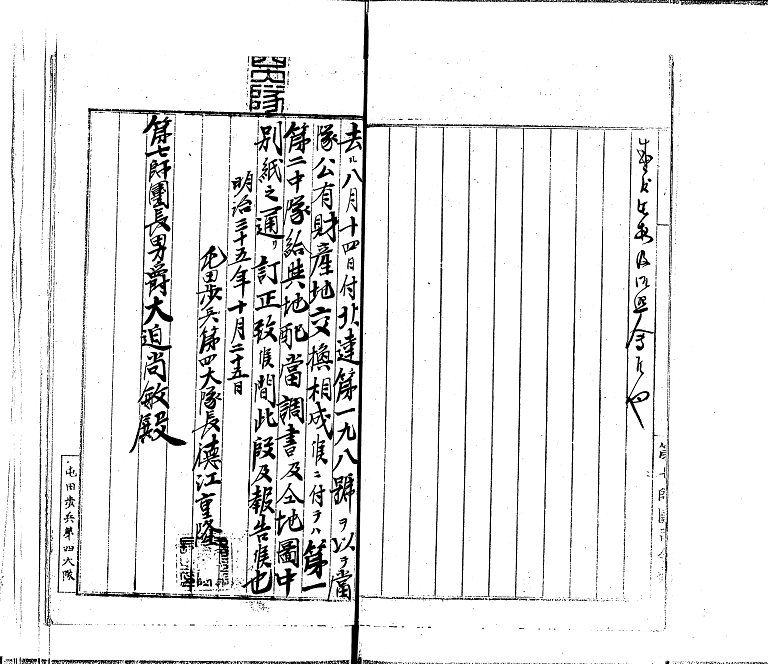 及御照会候也
第七師團司令部
去ル八月十四日付北達第一九八號ヲ以テ當
隊公有財産地交換相成候ニ付テハ第一
第二中隊給與地配當調書及仝地圖中
別紙之通リ訂正致候間此段及報告候也
明治三十五年十月二十五日
屯田歩兵第四大隊長德江重隆
第七師團長男爵大迫尚敏殿
屯田歩兵第四大隊